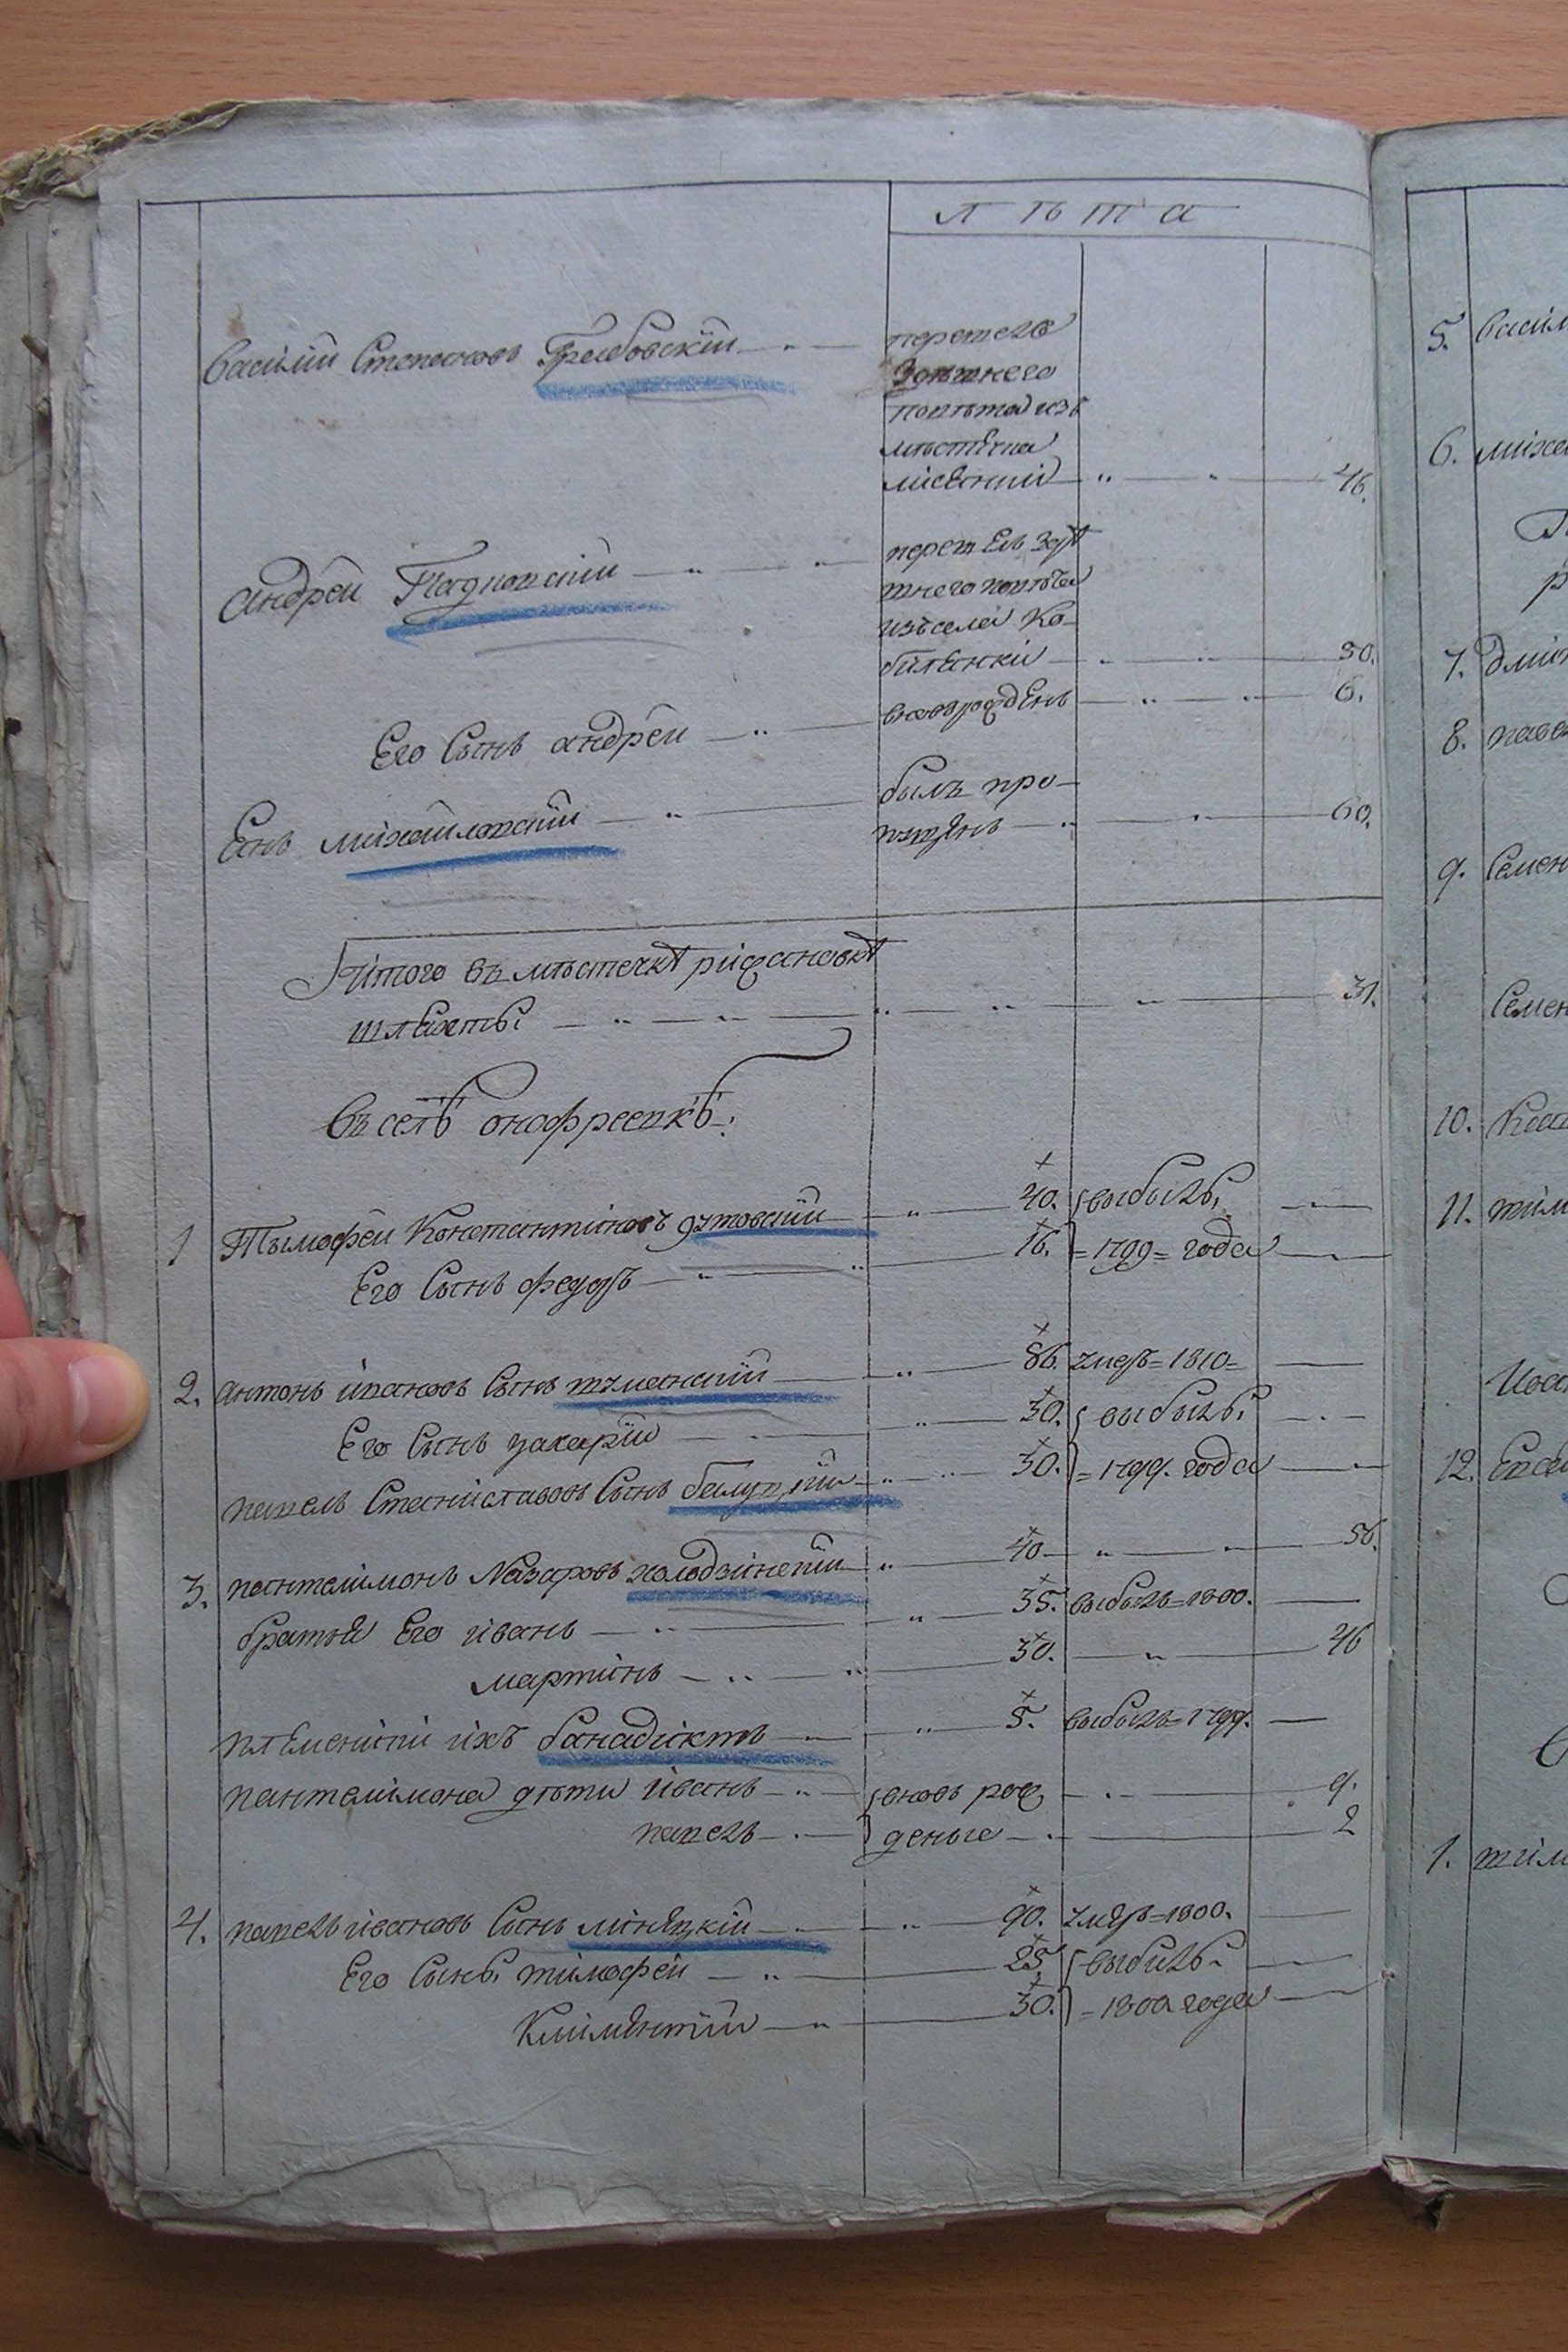 лѣта
Василий Степановъ Грабовскій
перешелъ
здѣшнего
повѣта изъ
мѣстечка
46.
Андрей
перешелъ здѣ
шнего повѣта
изъ села Ко-
биленки 30.
Его Сынъ андрей вновьрожденъ 6.
Янъ михайловскій былъ про-
пущенъ 60.
Итого въ мѣстечкѣ рижановкѣ
шляхты 31.
Въ селѣ онофреевкѣ:
1 Тымофей Константиновъ дутовский 40. выбылъ
Его Сынъ федоръ 16. =1799= года
2. антонъ ивановъ Сынъ туманский 86. умеръ=1810=
Его Сынъ захарий 30. выбылъ
павелъ Станиславовъ Сынъ 30. =1799. года
3. пантелимонъ Назаровъ холодзинский 40 56.
братья Его иванъ 35. выбылъ=1800.
мартинъ 30. 46
племенникъ ихъ банадиктъ 5. выбылъ=1799.
пантелимона дѣти иванъ вновь рож 9.
павелъ деные 2
4. павелъ ивановъ Сынъ линѣцкій 90. умеръ=1800.
Его Сыны тимофей 25. выбылъ
Климентий 30. =1800 года
5. Васил
6. миха
7. дми
8. паве
9. Семен
Семен
10.
11. тим
12.
1. тим